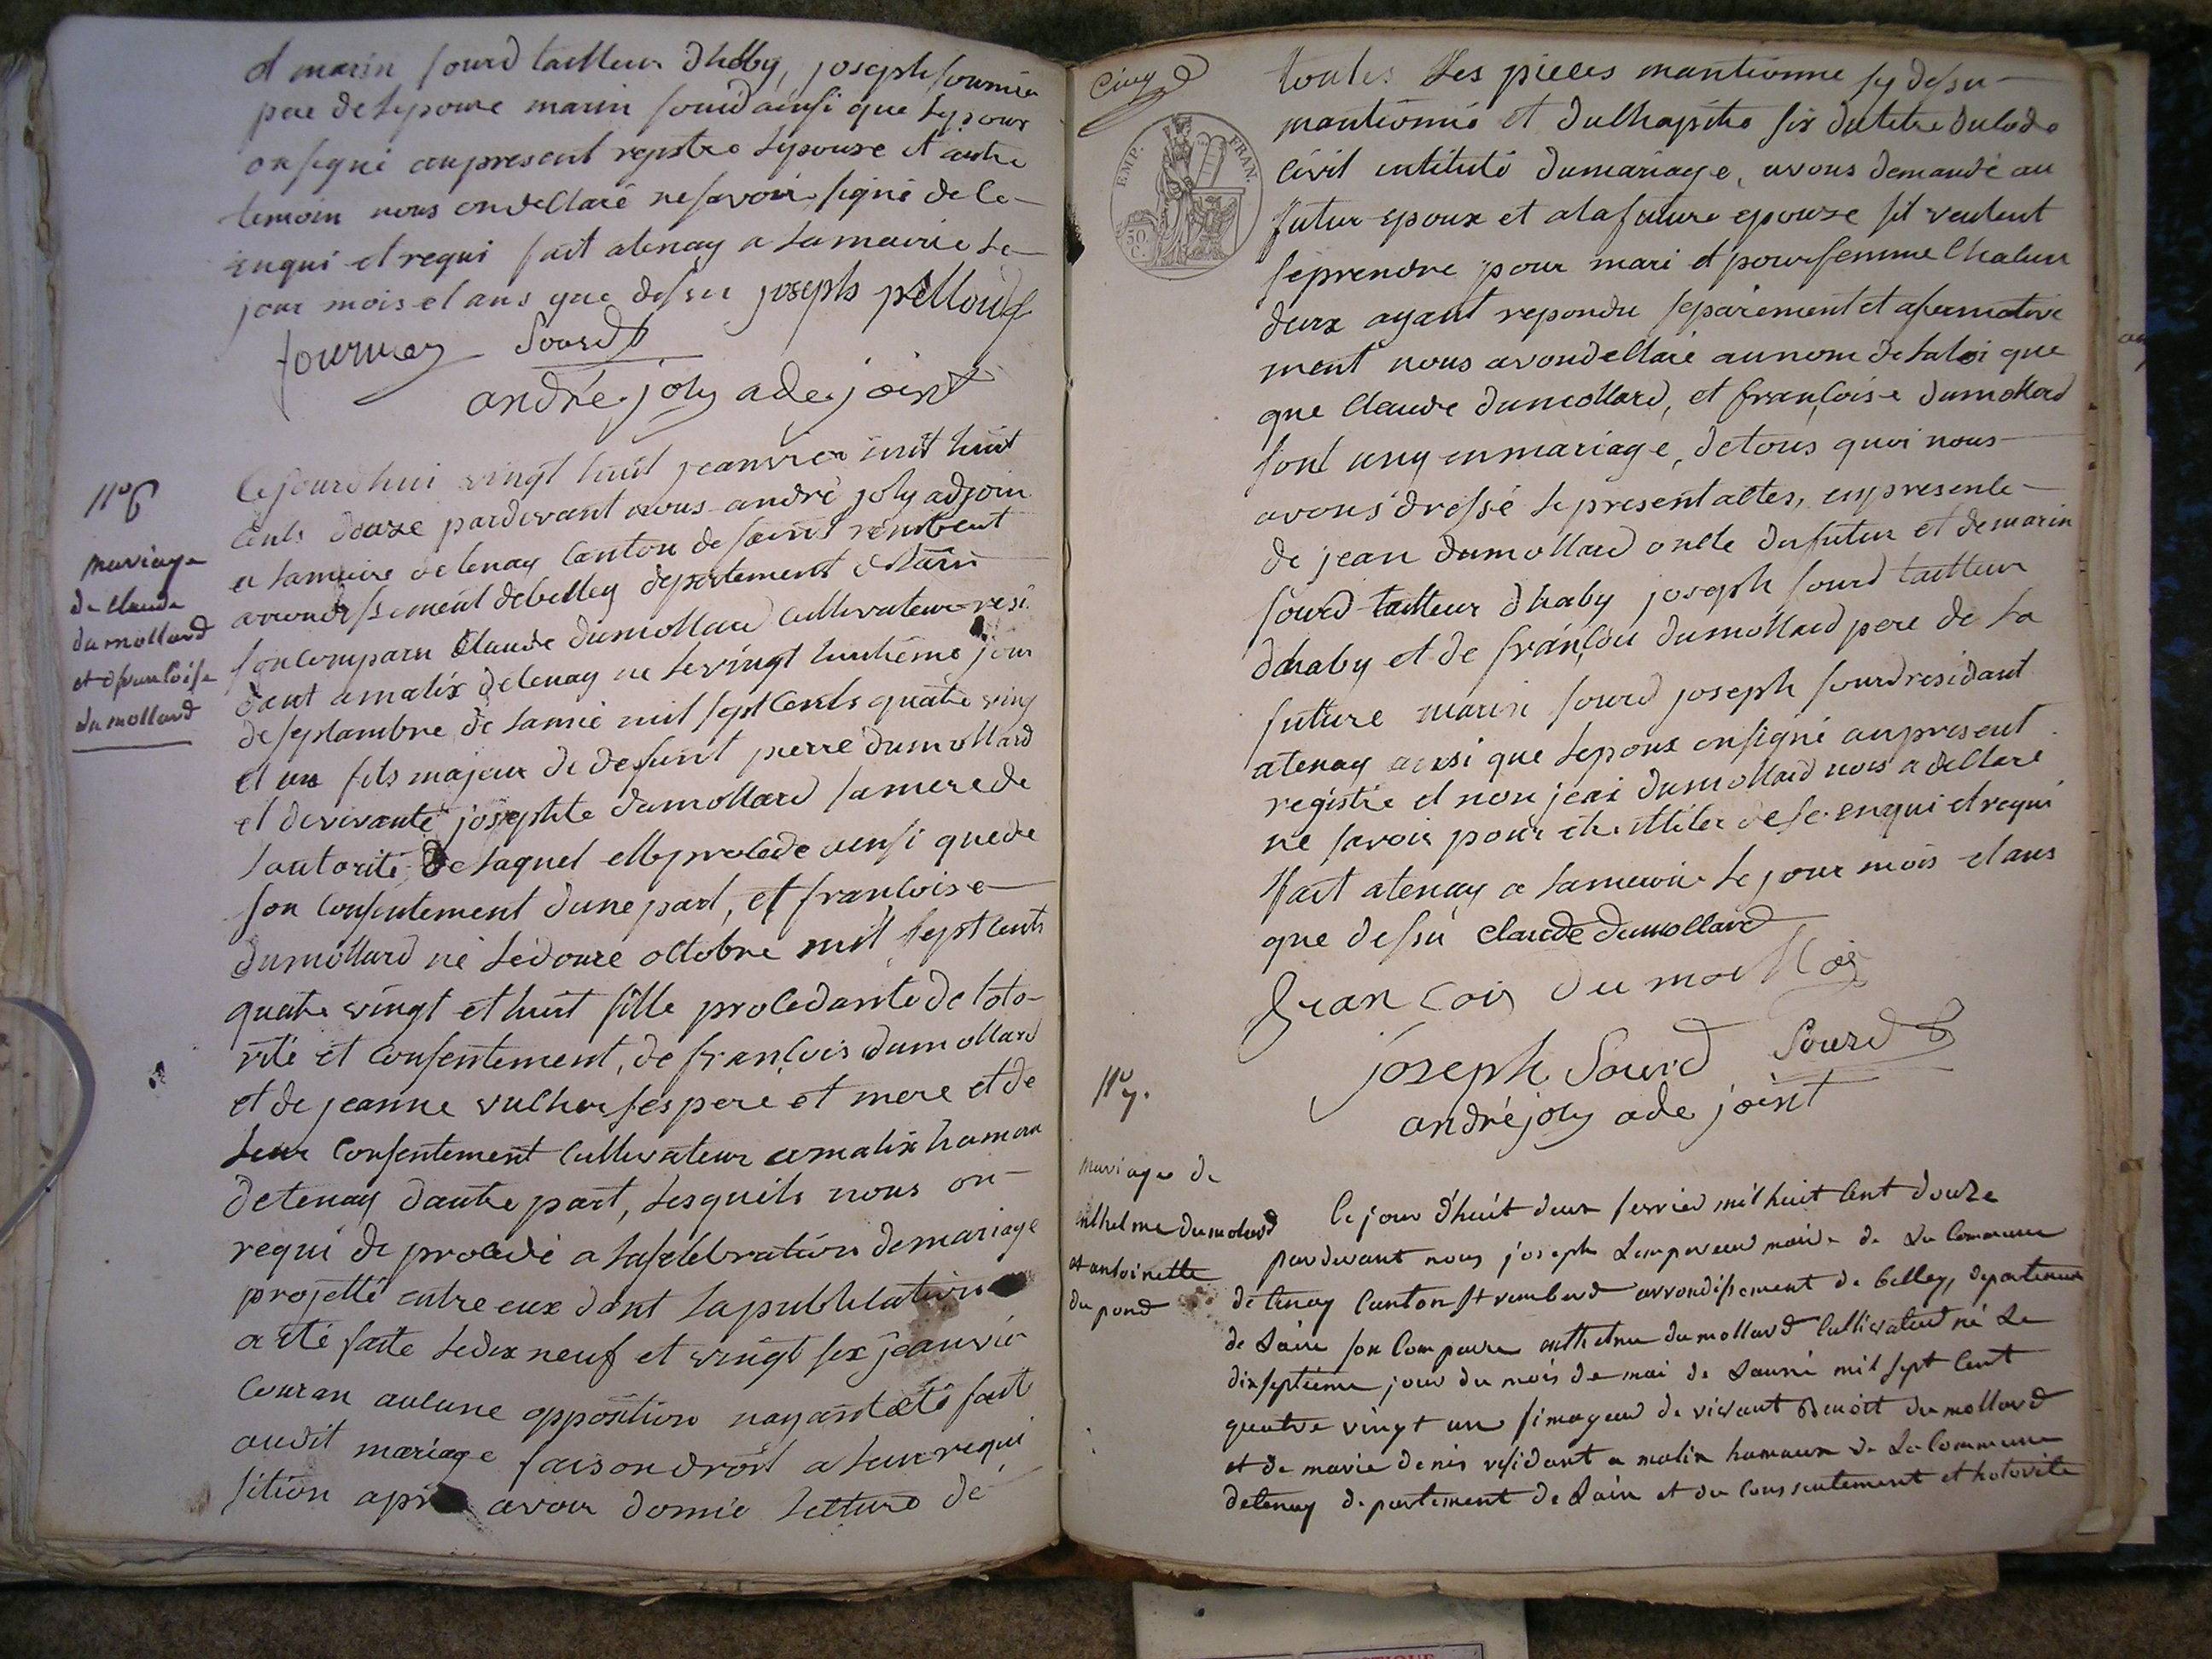 et marin sourd tailleur dhaby, joseph fournier
pere de lepouse marin sourd ainsi que lepoux
on signé au present registre lepouse et autre
temoin nous on dellaré ne savoir signé de le
enqui et requi fait atenay a la mairie le
jour mois et ans que dessu joseph pelloux
fournier Sourd
andré joly adejoint
nº 6
mariage
de claude
dumollard
et francoise
dumollard
Cejourdhui vingt huit jeanvier mit huit
cents douze pardevant nous andré joly adjoin
a lamairie de tenay canton de saint rembeut
arrondissement debelley departement delain
son comparu Claude dumollard cultivateur resi
dant amalix de tenay né le vingt huitieme jour
de septambre de lannie mil sept cents quatre ving
et un fils majeur de defunt pierre dumollard
et devivante josephte dumollard sa mere de
lautorité de laquel elle procede ainsi que de
son consentement dune part, et francoise
dumollard né le douze octobre mil sept cents
quatre vingt et huit fille procedante de loto-
rité et consentement, de francois dumollard
et de jeanne vulher ses pere et mere et de
leur consentement cultivateur amalix hamau
detenay dautre part, lesquels nous on
requi de procedé a la selebration demariage
projetté entre eux dont la publication
a eté faite le dix neuf et vingt six jeanvié
couran aucune opposition nayant eté fait
audit mariage faison droit a leur requi
sition apré avoir donnié letture de
Cinq
EMP. FRAN.
50 C.
toutes les pieces mantionne sy dessu
mantionnié et dulhapitre six dutitre dulode
civil intitulé dumariage, avons demandé au
futur epoux et alafuture epouse sil veulent
seprendre pour mari et pour femme chalun
deux ayant repondu separement et afermative
ment nous avondellaré au nom de la loi que
que Claude dumollard, et francoise dumollard
sont uny en mariage, detous quoi nous
avons dressé le present altes, en presente
de jean dumollard onlle du futur et de marin
sourd tailleur dhaby joseph sourd tailleur
dhaby et de francoi dumollard pere de la
future marin sourd joseph sourd residant
atenay ainsi que lepoux on signé au present
registre et non jean dumollard nous a dellaré
ne savoir pour etre illiter de se enqui et requi
fait atenay a la mairie le jour mois et ans
que dessu claude dumollard
francois dumollar
joseph Sourd Sourd
andré joly adejoint
nº 7.
mariage de
enthelme dumolard
et antoinette
du pond
Ce jour d'huit deux fevrier mil huit cent douze
pardevant nous joseph Lempereur maire de la commune
de tenay canton st rambert arrondissement de belley, departement
de Lain son compare enthelme dumollard cultivateur né le
dixseptieme jour du mois de mai de Lanné mil sept cent
quatre vingt un fi mageur de vivant Benoit dumollard
et de marie denis residant a malix hamaux de la commune
detenay departement de Lain et du conssentement et hotorité